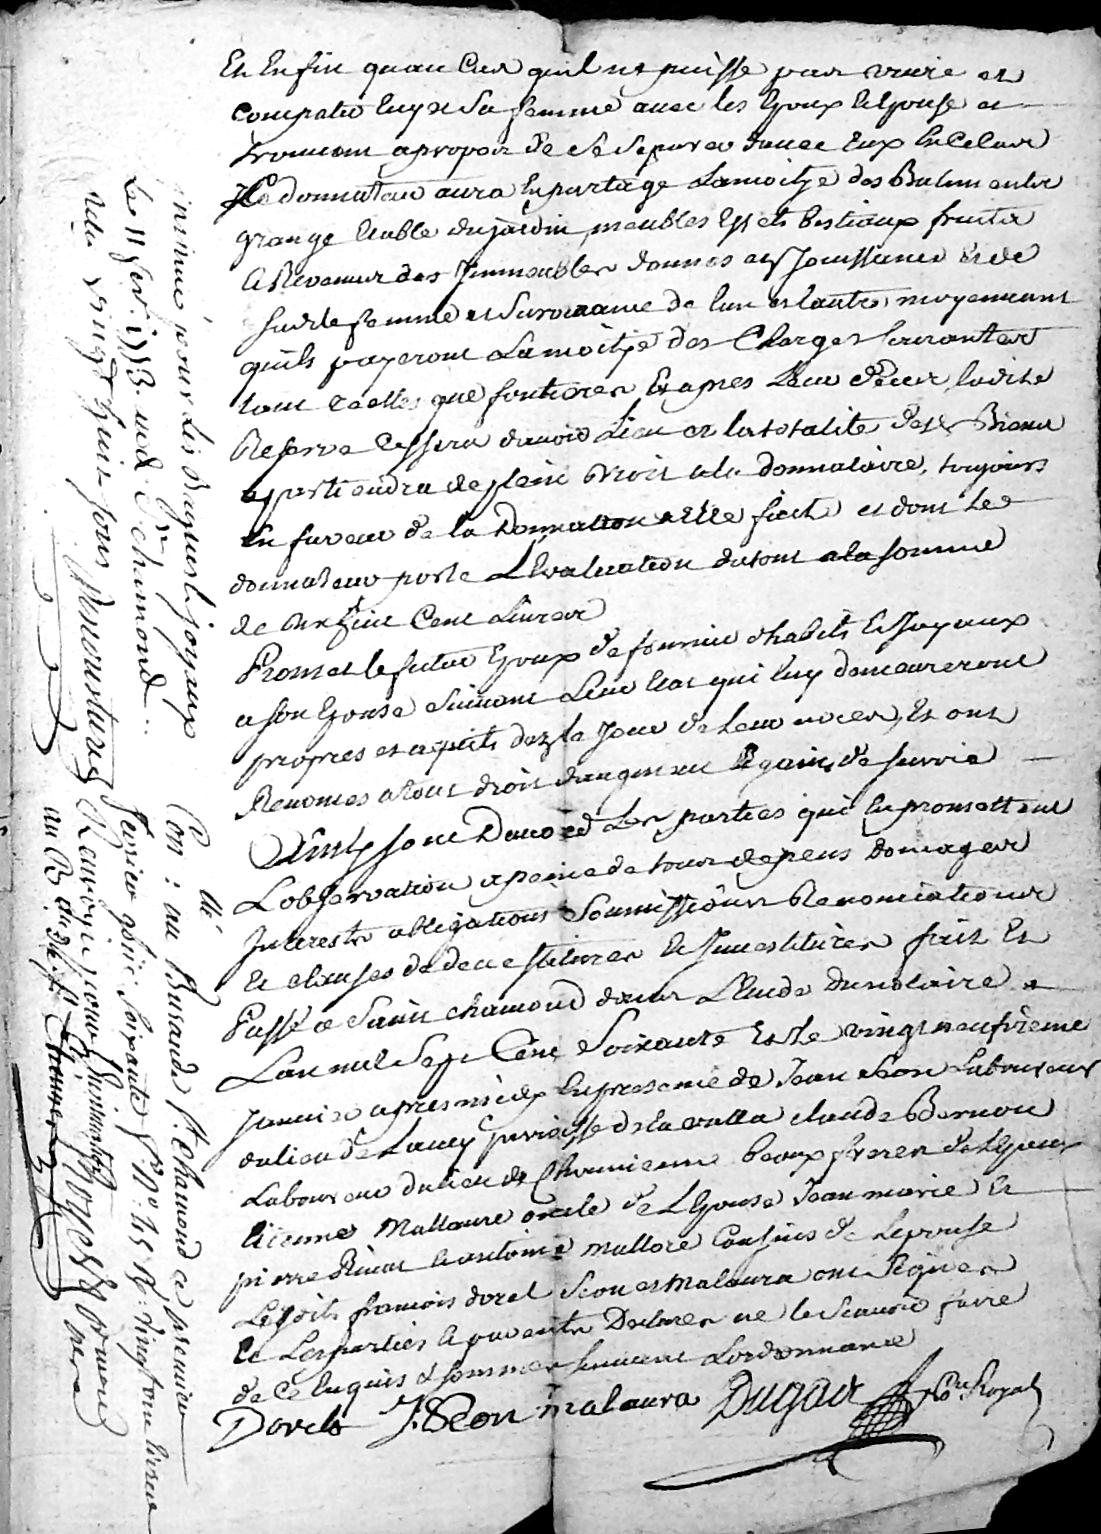 Et Enfin quau Cas quil ne puisse pas vivre et
Compatir luy et sa femme avec les Epoux et Epouse et
trouvant apropos de se separer davec Eux En ce Cas
Le donnateur aura En partage Lamoitye des Batimentz
grange Etable du jardin, meubles Effets bestiaux fruits
et Revenus des Immeubles donnés en Jouissance et de
sadite femme et survivance de lun et lautre moyennant
quils payeront Lamoitye des Charges Courantes
tant Reelles que foncieres Et apres Leur décès, ladite
Reserve Cessera davoir Lieu et latotalité des Biens
appartiendra de plein droit ala donnataire, toujours
En faveur de la donnation a Elle faite et dont Le
donnateur porte Levaluation dutout alasomme
de Cent Livres
Promet le futur Epoux de fournir dhabits Et Joyaux
a son Epouse suivant Leur Etat qui luy demeureront
propres et acquits dez le Jour de leur noces, Et ont
Renoncés atout droit daugment et gains de survie
Ainsy sont Daccord Les parties qui En promettent
Lobservation apeine de tous depens Domages
Interests obligations Soumissions Renonciations
Et clauses de devestitures Et Investitures fait Et
Passé a Saint chamond dans LEtude dunotaire
Lan mil Sept Cent Soixante Et le vingt neufvieme
Janvier apres midy En presence de Jean Seon Laboureur
du lieu de Laucy parroisse de la valla claude Bernou
Laboureur du lieu de beaux freres de lEpoux
Etienne Mallaure oncle de LEpouse Jean marie Et
pierre Et antoine mallore Cousins de Lepouse
Lesdits francois dorel Seon et Malaura ont signés
Et Les parties Et parents Declarés ne le Scavoir faire
de Ce Enquis et sommés suivant Lordonnance
Dorel J. Seon malaura Dugas no.re Royal
insinué pour les Bagues et joyaux
Le 11 fev. 1773 aud St chamond
Reçu vingt huit sous
Con.: au Bureau de St. Chamond ce premier
fevrier 1760 soixante